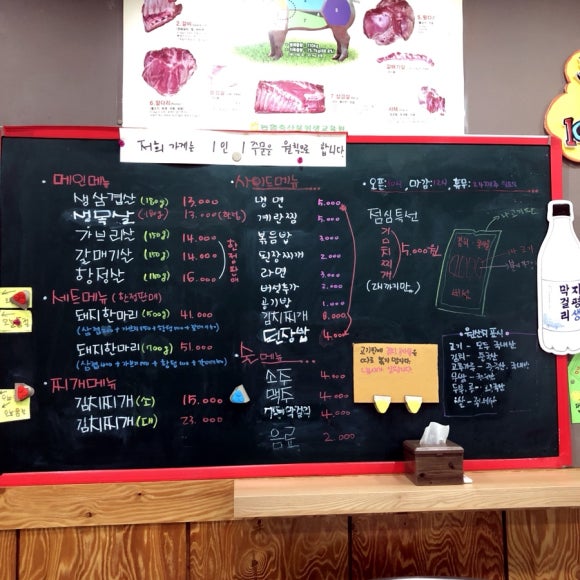 2. 갈비
5. 앞다리
6. 뒷다리
7. 삼겹살
저희 가게는 1인 1주문을 원칙으로 합니다
· 메인메뉴
생삼겹살 (180g) 13.000
생목살 (180g) 13.000 (한정)
가브리살 (150g) 14.000
갈매기살 (150g) 14.000
항정살 (150g) 16.000
한정판매
· 세트메뉴 (한정판매)
돼지한마리 (500g) 41.000
돼지한마리 (700g) 51.000
· 찌개메뉴
김치찌개 (소) 15.000
김치찌개 (대) 23.000
· 사이드메뉴
냉면 5.000
계란찜 5.000
볶음밥 3.000
된장찌개 2.000
라면 3.000
버섯추가 2.000
공기밥 1.000
김치찌개 8.000
된장밥 4.000
· 술메뉴
소주 4.000
맥주 4.000
4.000
음료 2.000
· 오픈: 마감: 휴무:
점심특선
김치찌개 5.000원
(2시까지만)
원산지 표시
고기 - 모두 국내산
김치 - 중국산
쌀 - 국내산
지평생
막걸리